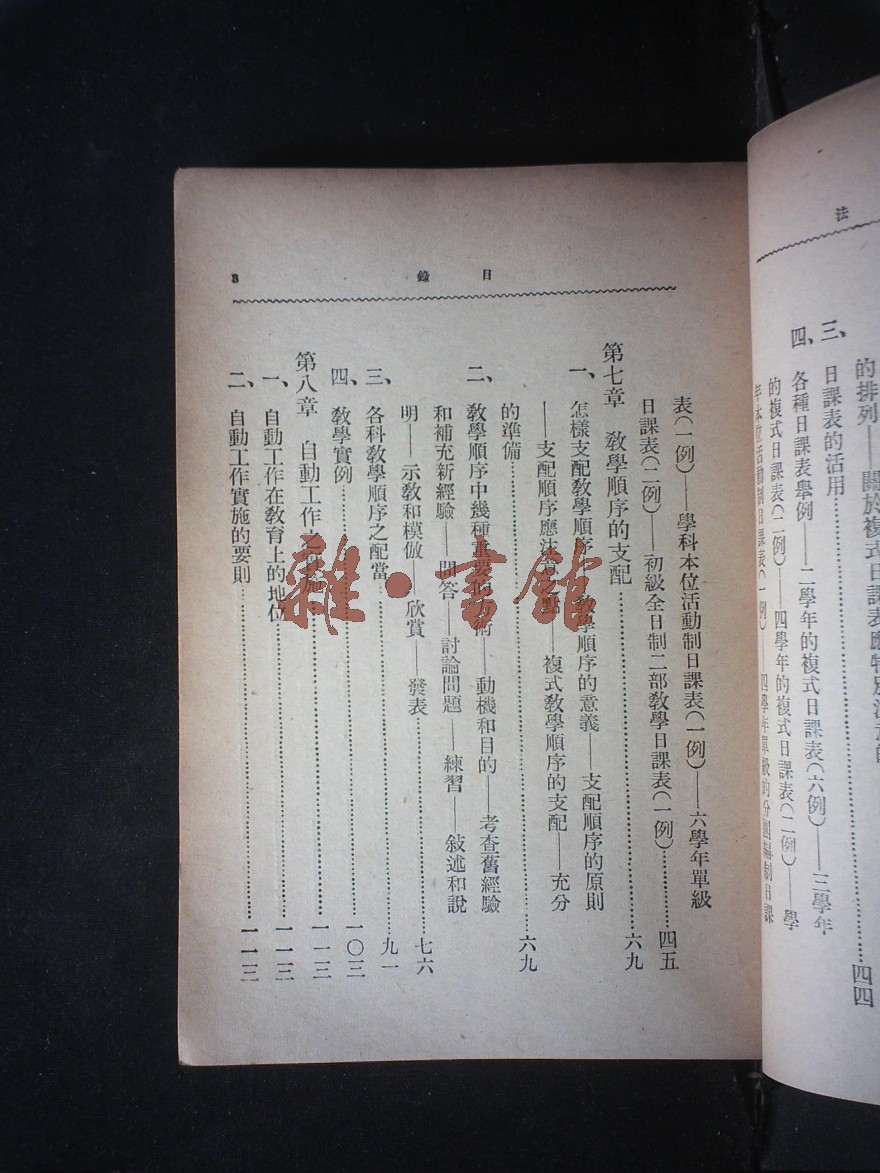 法
的排列——關於複式日課表應特別注意的
三、日課表的活用……四四
四、各種日課表舉例——二學年的複式日課表(六例)——三學年
的複式日課表(二例)——四學年的複式日課表(二例)——學
年本位活動制日課表(一例)——四學年單級的分團編制日課
目錄
3
表(一例)——學科本位活動制日課表(一例)——六學年單級
日課表(二例)——初級全日制二部教學日課表(一例)……四五
第七章 教學順序的支配……六九
一、怎樣支配教學順序 教學順序的意義——支配順序的原則
——支配順序應注意之點——複式教學順序的支配——充分
的準備……六九
二、教學順序中幾種重要的方術——動機和目的——考查舊經驗
和補充新經驗——問答——討論問題——練習——敍述和說
明——示教和模倣——欣賞——發表……七六
三、各科教學順序之配當……九一
四、教學實例……一〇三
第八章 自動工作之實施……一一三
一、自動工作在教育上的地位……一一三
二、自動工作實施的要則……一一三
雜·書館